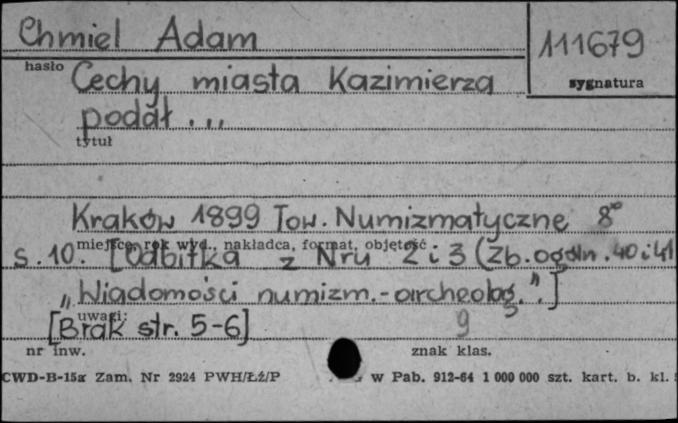 Chmiel Adam
111679
hasło
sygnatura
Cechy miasta Kazimierza
podał...
tytuł
Kraków 1899 Tow. Numizmatyczne 8°
miejsce, rok wyd., nakładca, format, objętość
s. 10. [Odbitka z Nru 2 i 3 (Zb. ogóln. 40 i 41
"Wiadomości numizm.-archeolog.".]
uwagi:
[Brak str. 5-6] 9
nr inw.
znak klas.
CWD-B-15a Zam. Nr 2924 PWH/Łź/P w Pab. 912-64 1 000 000 szt. kart. b. kl.